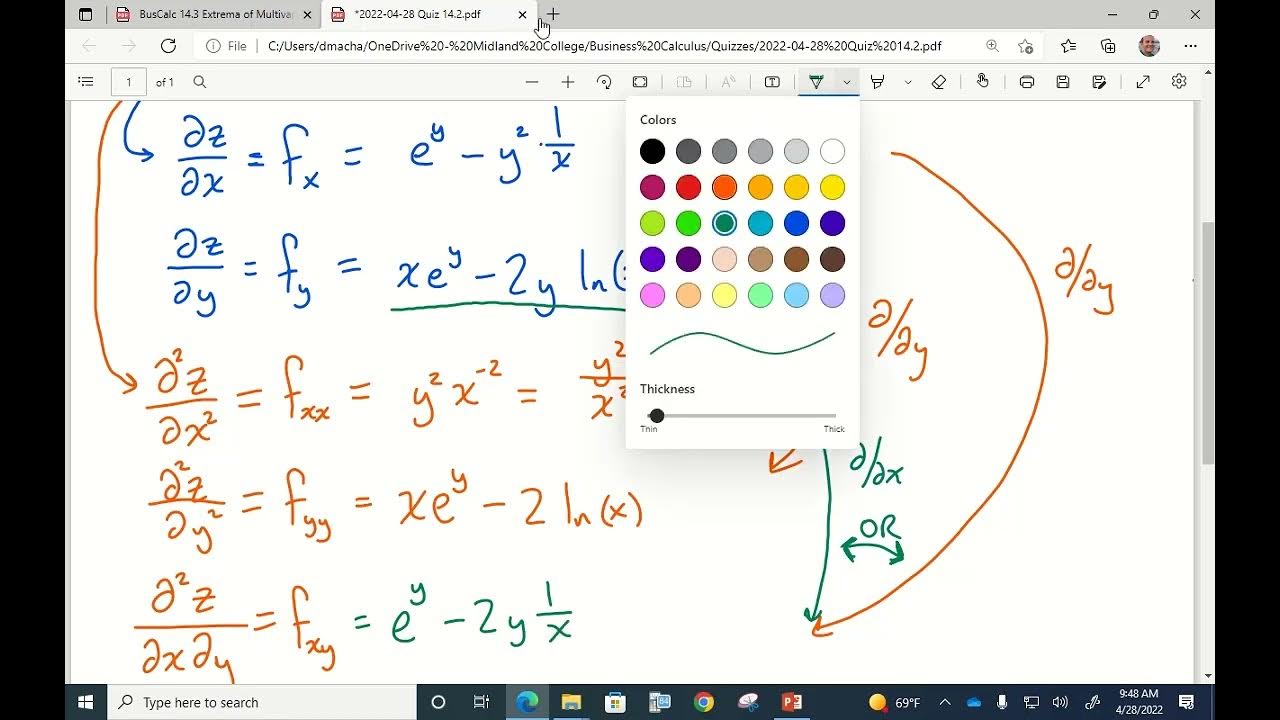 BusCalc 14.3 Extrema of Multivar
*2022-04-28 Quiz 14.2.pdf
File C:/Users/dmacha/OneDrive%20-%20Midland%20College/Business%20Calculus/Quizzes/2022-04-28%20Quiz%2014.2.pdf
1 of 1
Colors
Thickness
Thin Thick
∂z/∂x = f_x = e^y − y^2 · 1/x
∂z/∂y = f_y = xe^y − 2y ln(
∂²z/∂x² = f_xx = y² x^-2 = y²/x²
∂²z/∂y² = f_yy = xe^y − 2 ln(x)
∂²z/∂x∂y = f_xy = e^y − 2y 1/x
∂/∂y
∂/∂y
∂/∂x
OR
Type here to search
69°F
9:48 AM
4/28/2022